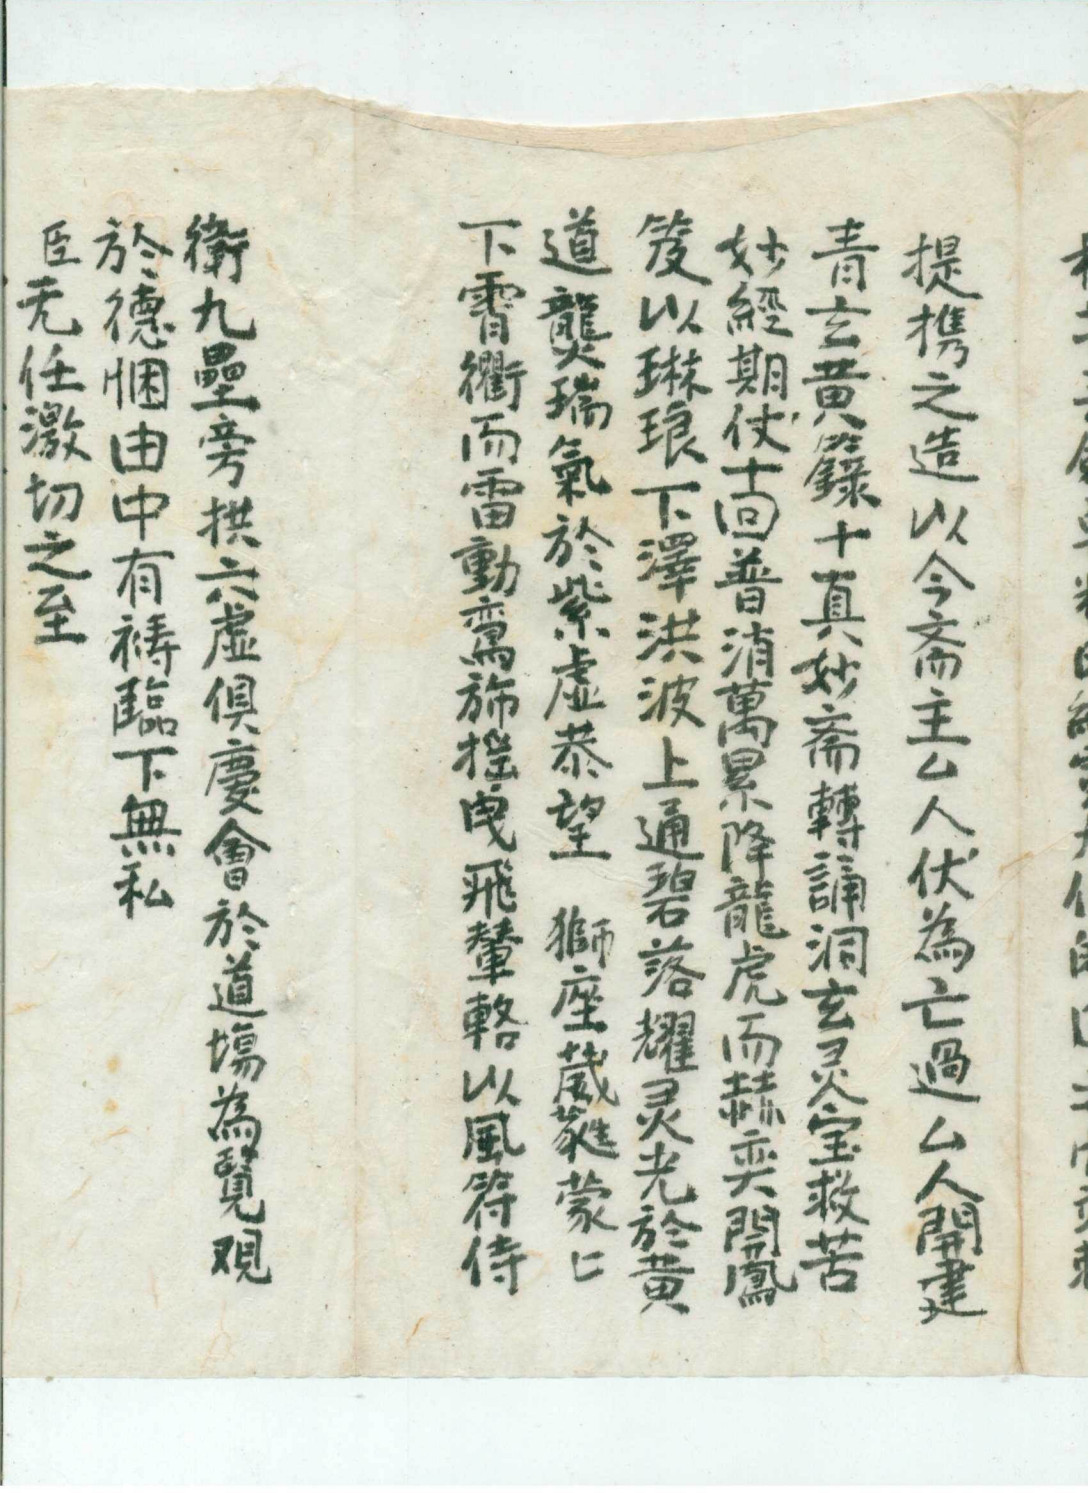 提携之造以今斋主厶人伏為亡過厶人開建
青玄黄籙十真妙斋轉誦洞玄灵宝救苦
妙經期仗十回普消萬累降龍虎而赫奕開鳳
笈以琳琅下澤洪波上通碧落耀灵光於黄
道龑瑞氣於紫虛恭望 獅座葳蕤蒙仁
下霄衢而雷動鸾旆摇曳飛輦輅以風符侍
衛九壘旁拱六虛俱慶會於道塲為覽观
於德悃由中有祷臨下無私
臣无任激切之至